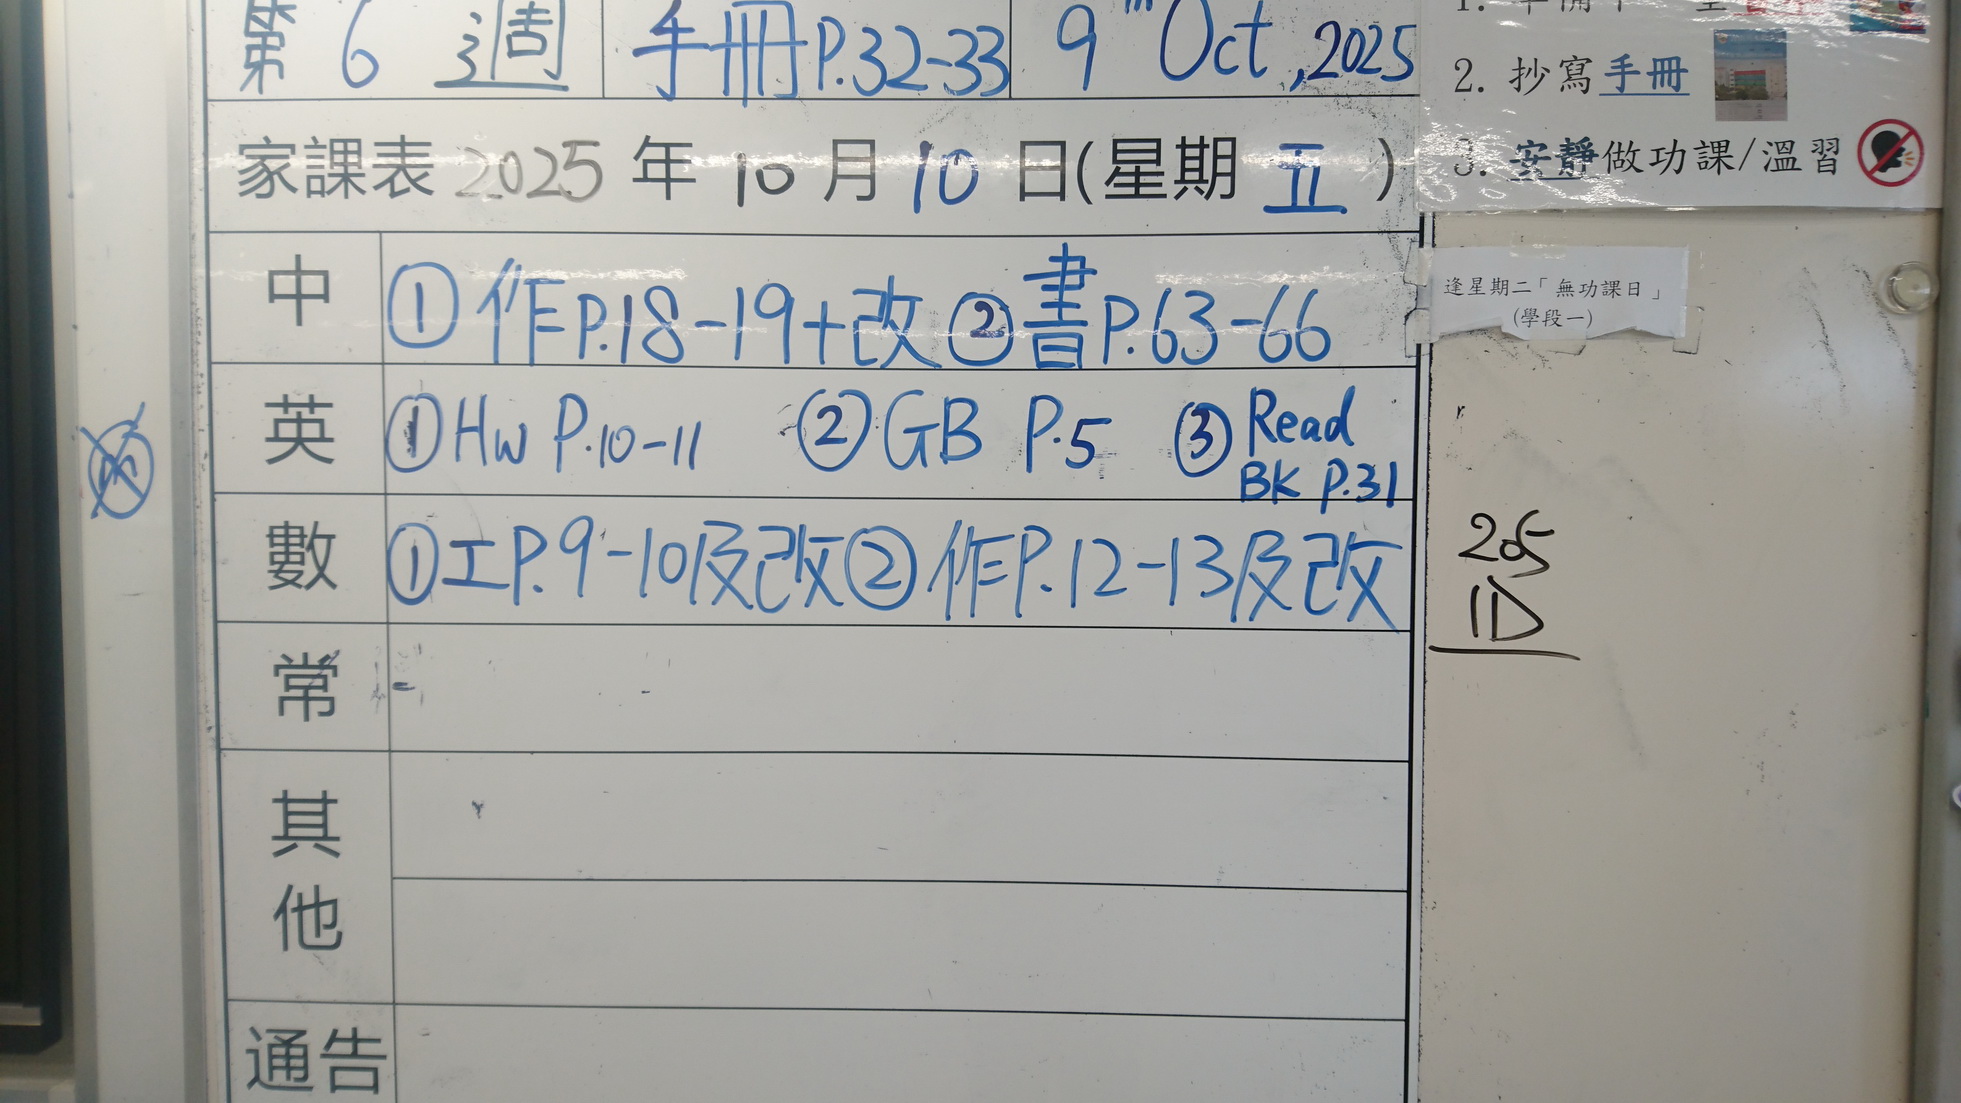 第 6 週 手冊P.32-33 9th Oct, 2025
家課表 2025 年 10 月 10 日(星期 五 )
中 ① 作P.18-19+改 ② 書P.63-66
英 ① HW P.10-11 ② GB P.5 ③ Read
BK P.31
數 ① 工P.9-10及改 ② 作P.12-13及改
常
其
他
通告
2. 抄寫手冊
3. 安靜做功課/溫習
逢星期二「無功課日」
(學段一)
1D